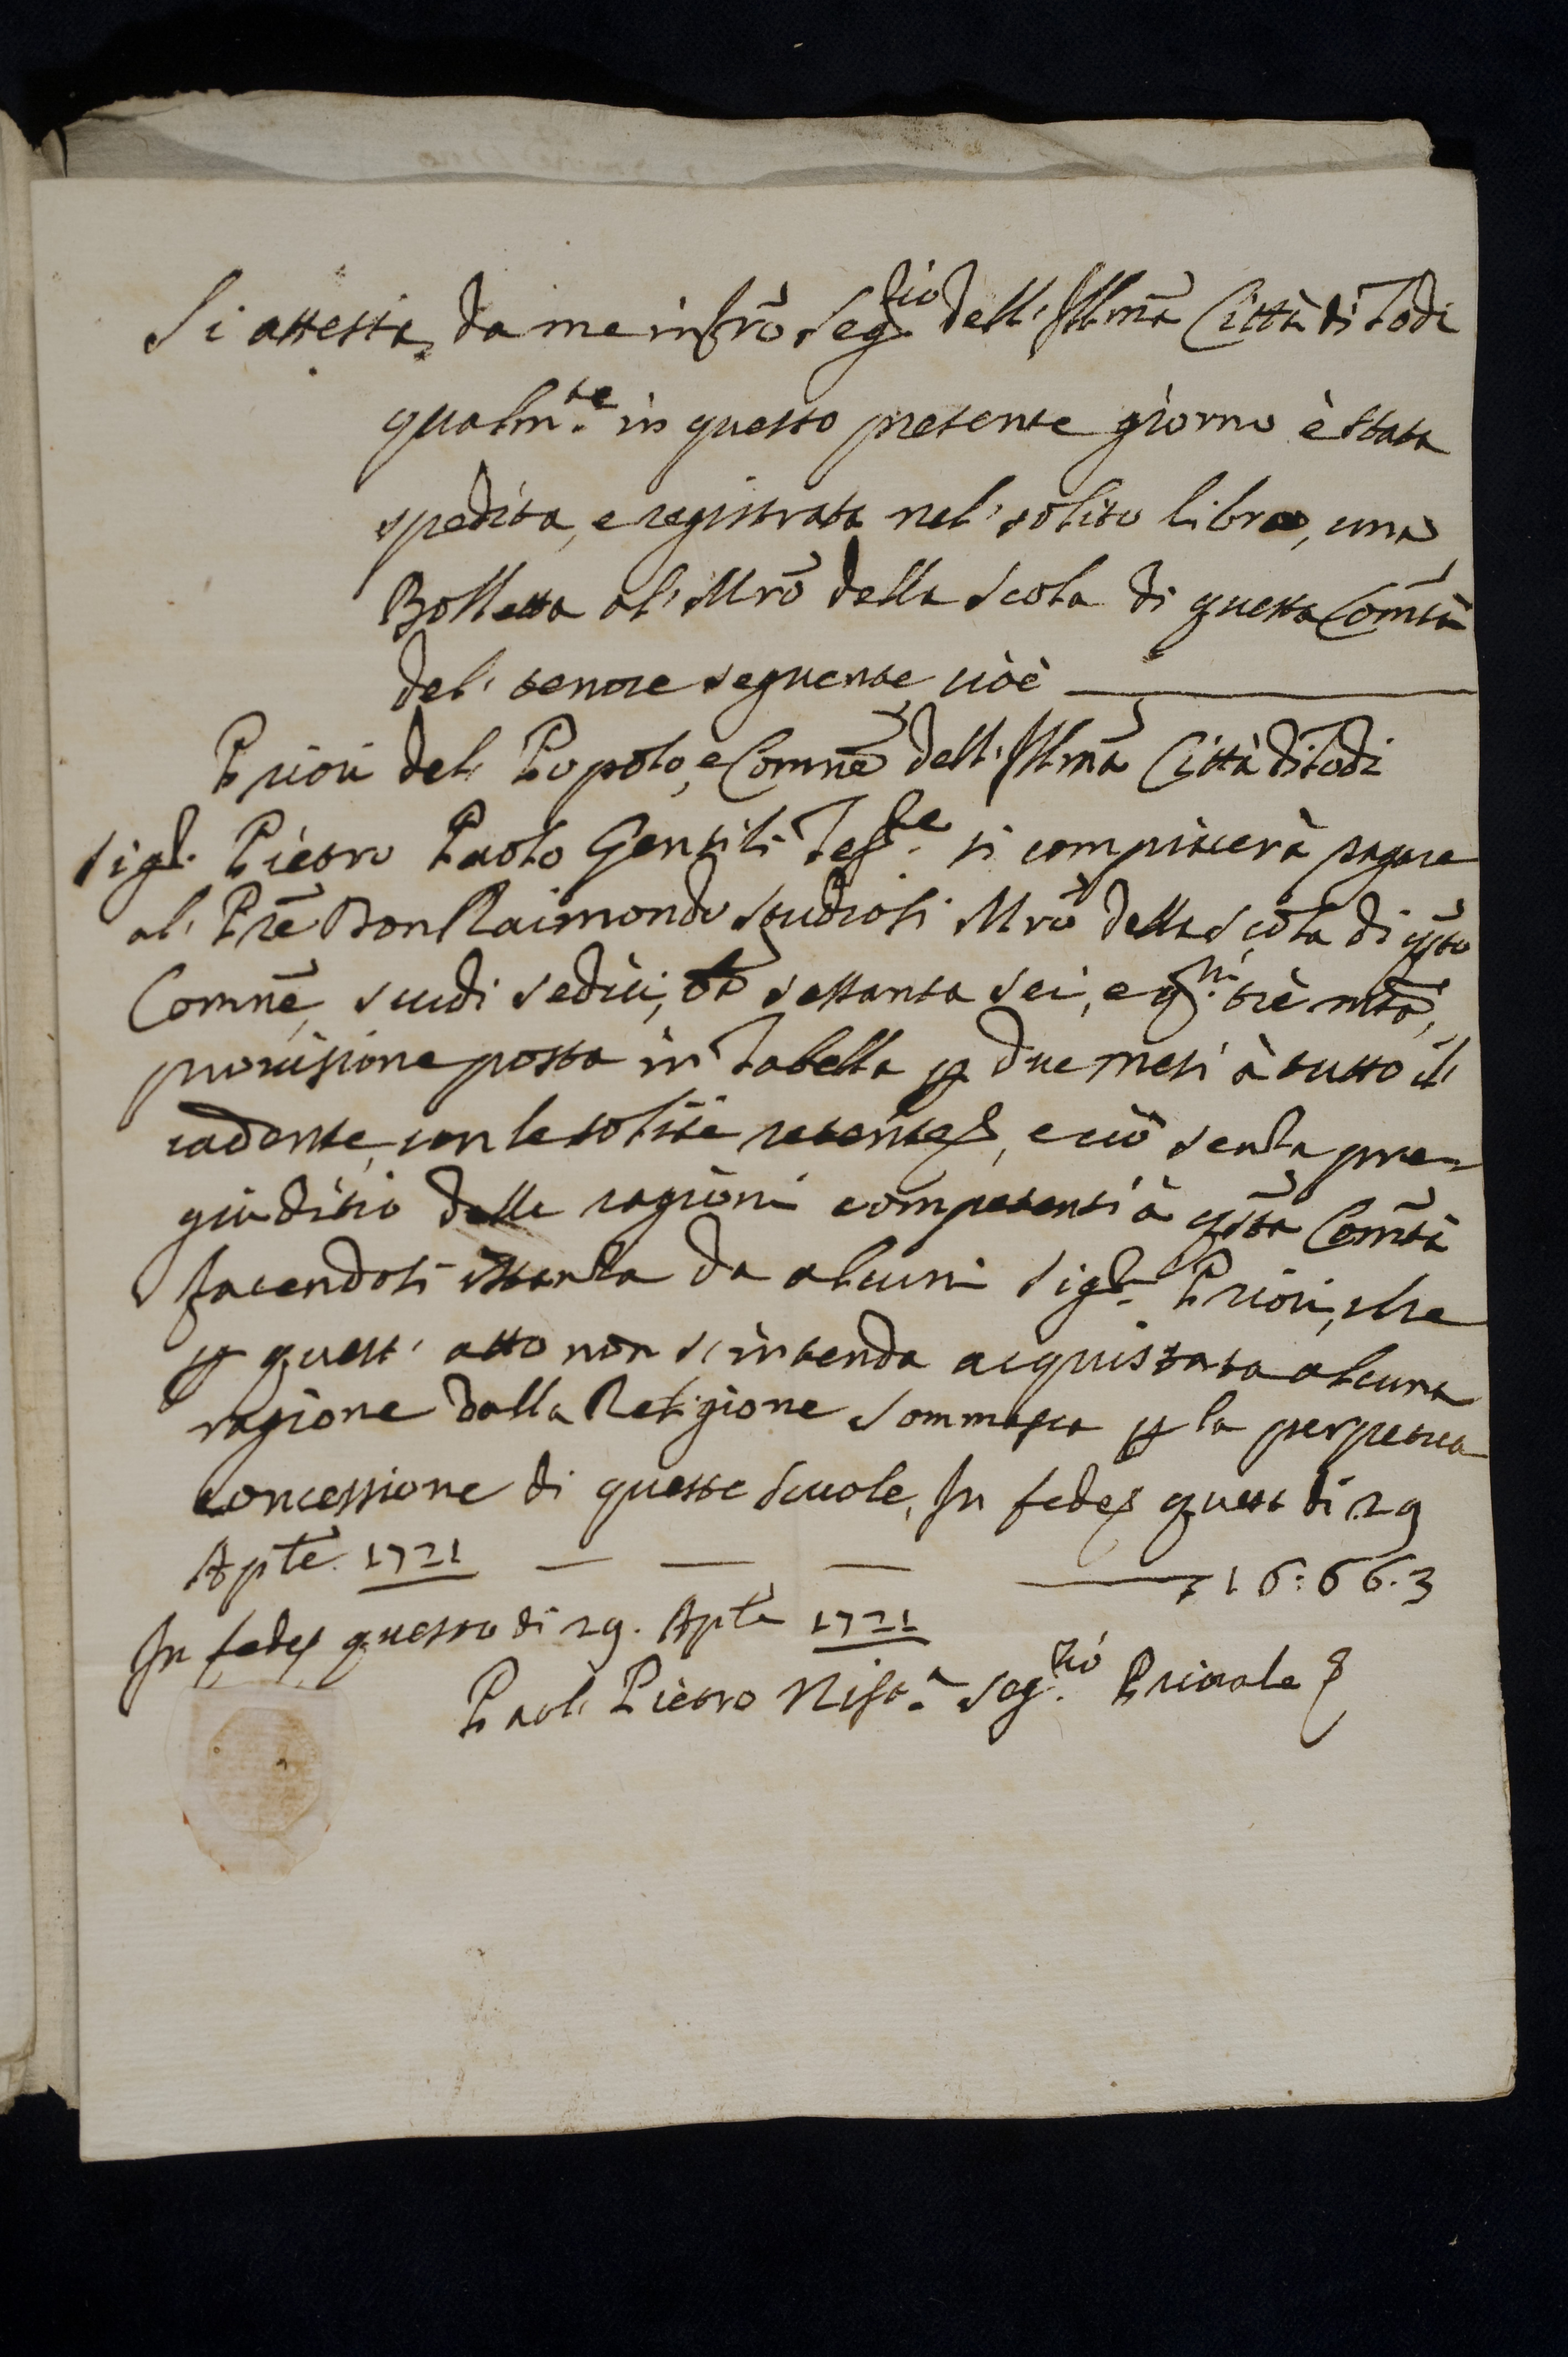 Si attesta da me infrõ Seg.rio dell'Illmã Città di Todi
qualm.te in questo presente giorno è stata
spedita, e registrata nel' solito libro, una
Bolletta al' Mrõ della Scola di questa Comtà
del' tenore seguente cioè
Priori del Popolo, e Comnẽ dell'Illmã Città di Todi
Sigr. Pietro Paolo Gentili Tes.re si compiacerà pagare
al' Prẽ Don Raimondo Studioli Mrõ della Scola di qsto
Comnẽ, scudi sedici, settanta sei, e q.ni trè mtã,
provisione posta in Tabella p due mesi à tutto il
cadente, con le solite retent, e ciò senza pre=
giuditio delle ragioni competenti à qsta Comtà
facendosi istanza da alcuni Sigri Priori, che
p quest' atto non s'intenda acquistata alcuna
ragione dalla Religione Sommasca p la perpetua
concessione di queste Scuole, In fede questo di 29
Aplẽ 1721 — — — 16:66.3
In fede questo di 29. Aplẽ 1721
Paol' Pietro Seg.rio Priorale